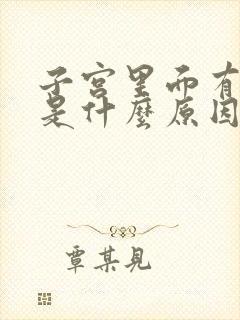 子宫里面有
是什麼原因
覃某見